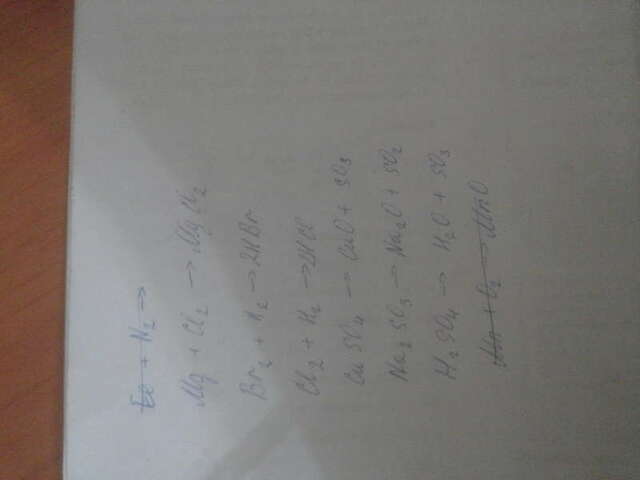 Fe + N₂ →
Mg + Cl₂ → MgCl₂
Br₂ + H₂ → 2HBr
Cl₂ + H₂ → 2HCl
CuSO₄ → CuO + SO₃
Na₂SO₃ → Na₂O + SO₂
H₂SO₄ → H₂O + SO₃
Mn + O₂ → MnO